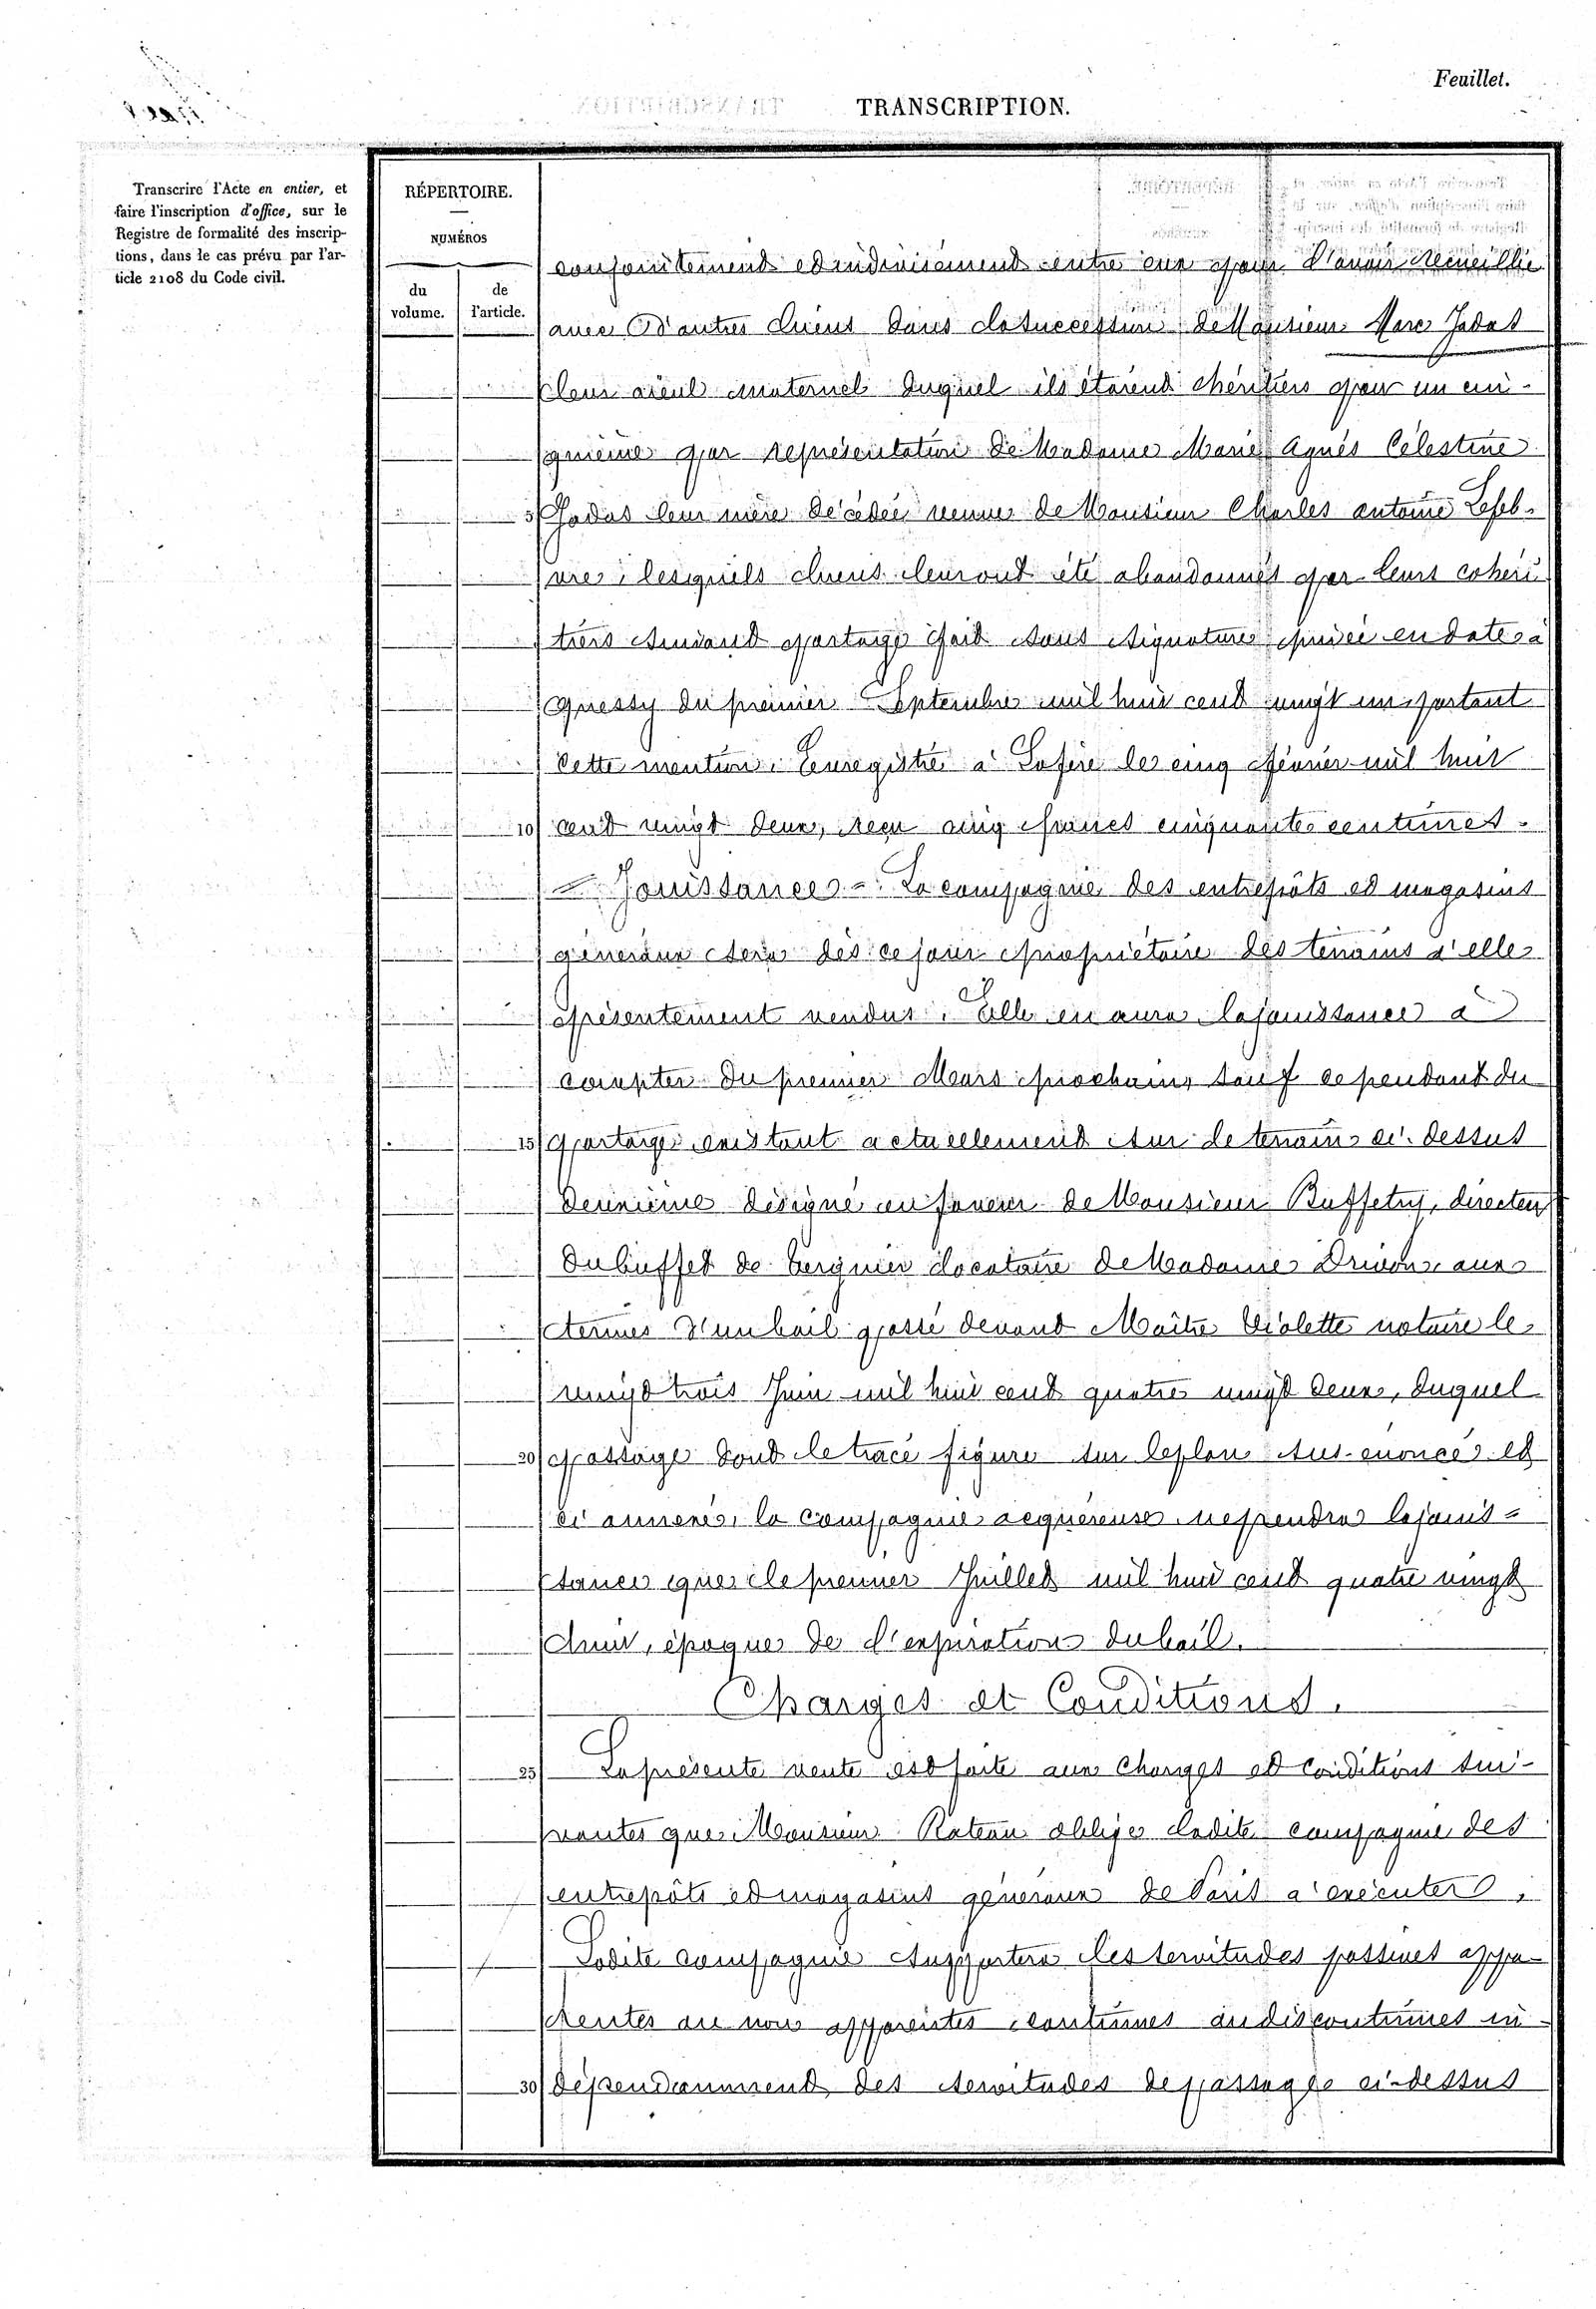 Feuillet.
TRANSCRIPTION.
Transcrire l'Acte en entier, et
faire l'inscription d'office, sur le
Registre de formalité des inscrip-
tions, dans le cas prévu par l'ar-
ticle 2108 du Code civil.
RÉPERTOIRE.
NUMÉROS
du volume.
de l'article.
conjointement et indivisément entre eux pour l'avoir recueillie
avec d'autres biens dans la succession de Monsieur Marc Jadas
leur aïeul maternel duquel ils étaient héritiers pour un cin-
quième par représentation de Madame Marie Agnès Célestine
5 Jadas leur mère décédée veuve de Monsieur Charles antoine Lefeb-
vre, lesquels biens leur ont été abandonnés par leurs cohéri-
tiers suivant partage fait sous signatures privée en date à
Quessy du premier Septembre mil huit cent vingt un portant
cette mention. Enregistré à Lafère le cinq février mil huit
10 cent vingt deux, reçu cinq francs cinquante centimes.
= Jouissance = La compagnie des entrepôts et magasins
généraux sera dès ce jour propriétaire des terrains à elle
présentement vendus. Elle en aura la jouissance à
compter du premier Mars prochain, sauf cependant du
15 partage existant actuellement sur le terrain ci-dessus
deuxième désigné en faveur de Monsieur Buffetry, directeur
du buffet de Tergnier locataire de Madame Drivon, aux
termes d'un bail passé devant Maître Violette notaire le
vingt trois Juin mil huit cent quatre vingt deux, duquel
20 passage dont le tracé figure sur le plan sus-énoncé et
ci annexé, la compagnie acquéreuse ne prendra la jouis-
sance que le premier Juillet mil huit cent quatre vingt
huit, époque de l'expiration du bail.
Charges et Conditions.
25 La présente vente est faite aux charges et conditions sui-
vantes que Monsieur Rateau oblige ladite compagnie des
entrepôts et magasins généraux de Paris à exécuter.
Ladite compagnie supportera les servitudes passives appa-
rentes ou non apparentes, continues ou discontinues in-
30 dépendamment des servitudes de passage ci-dessus